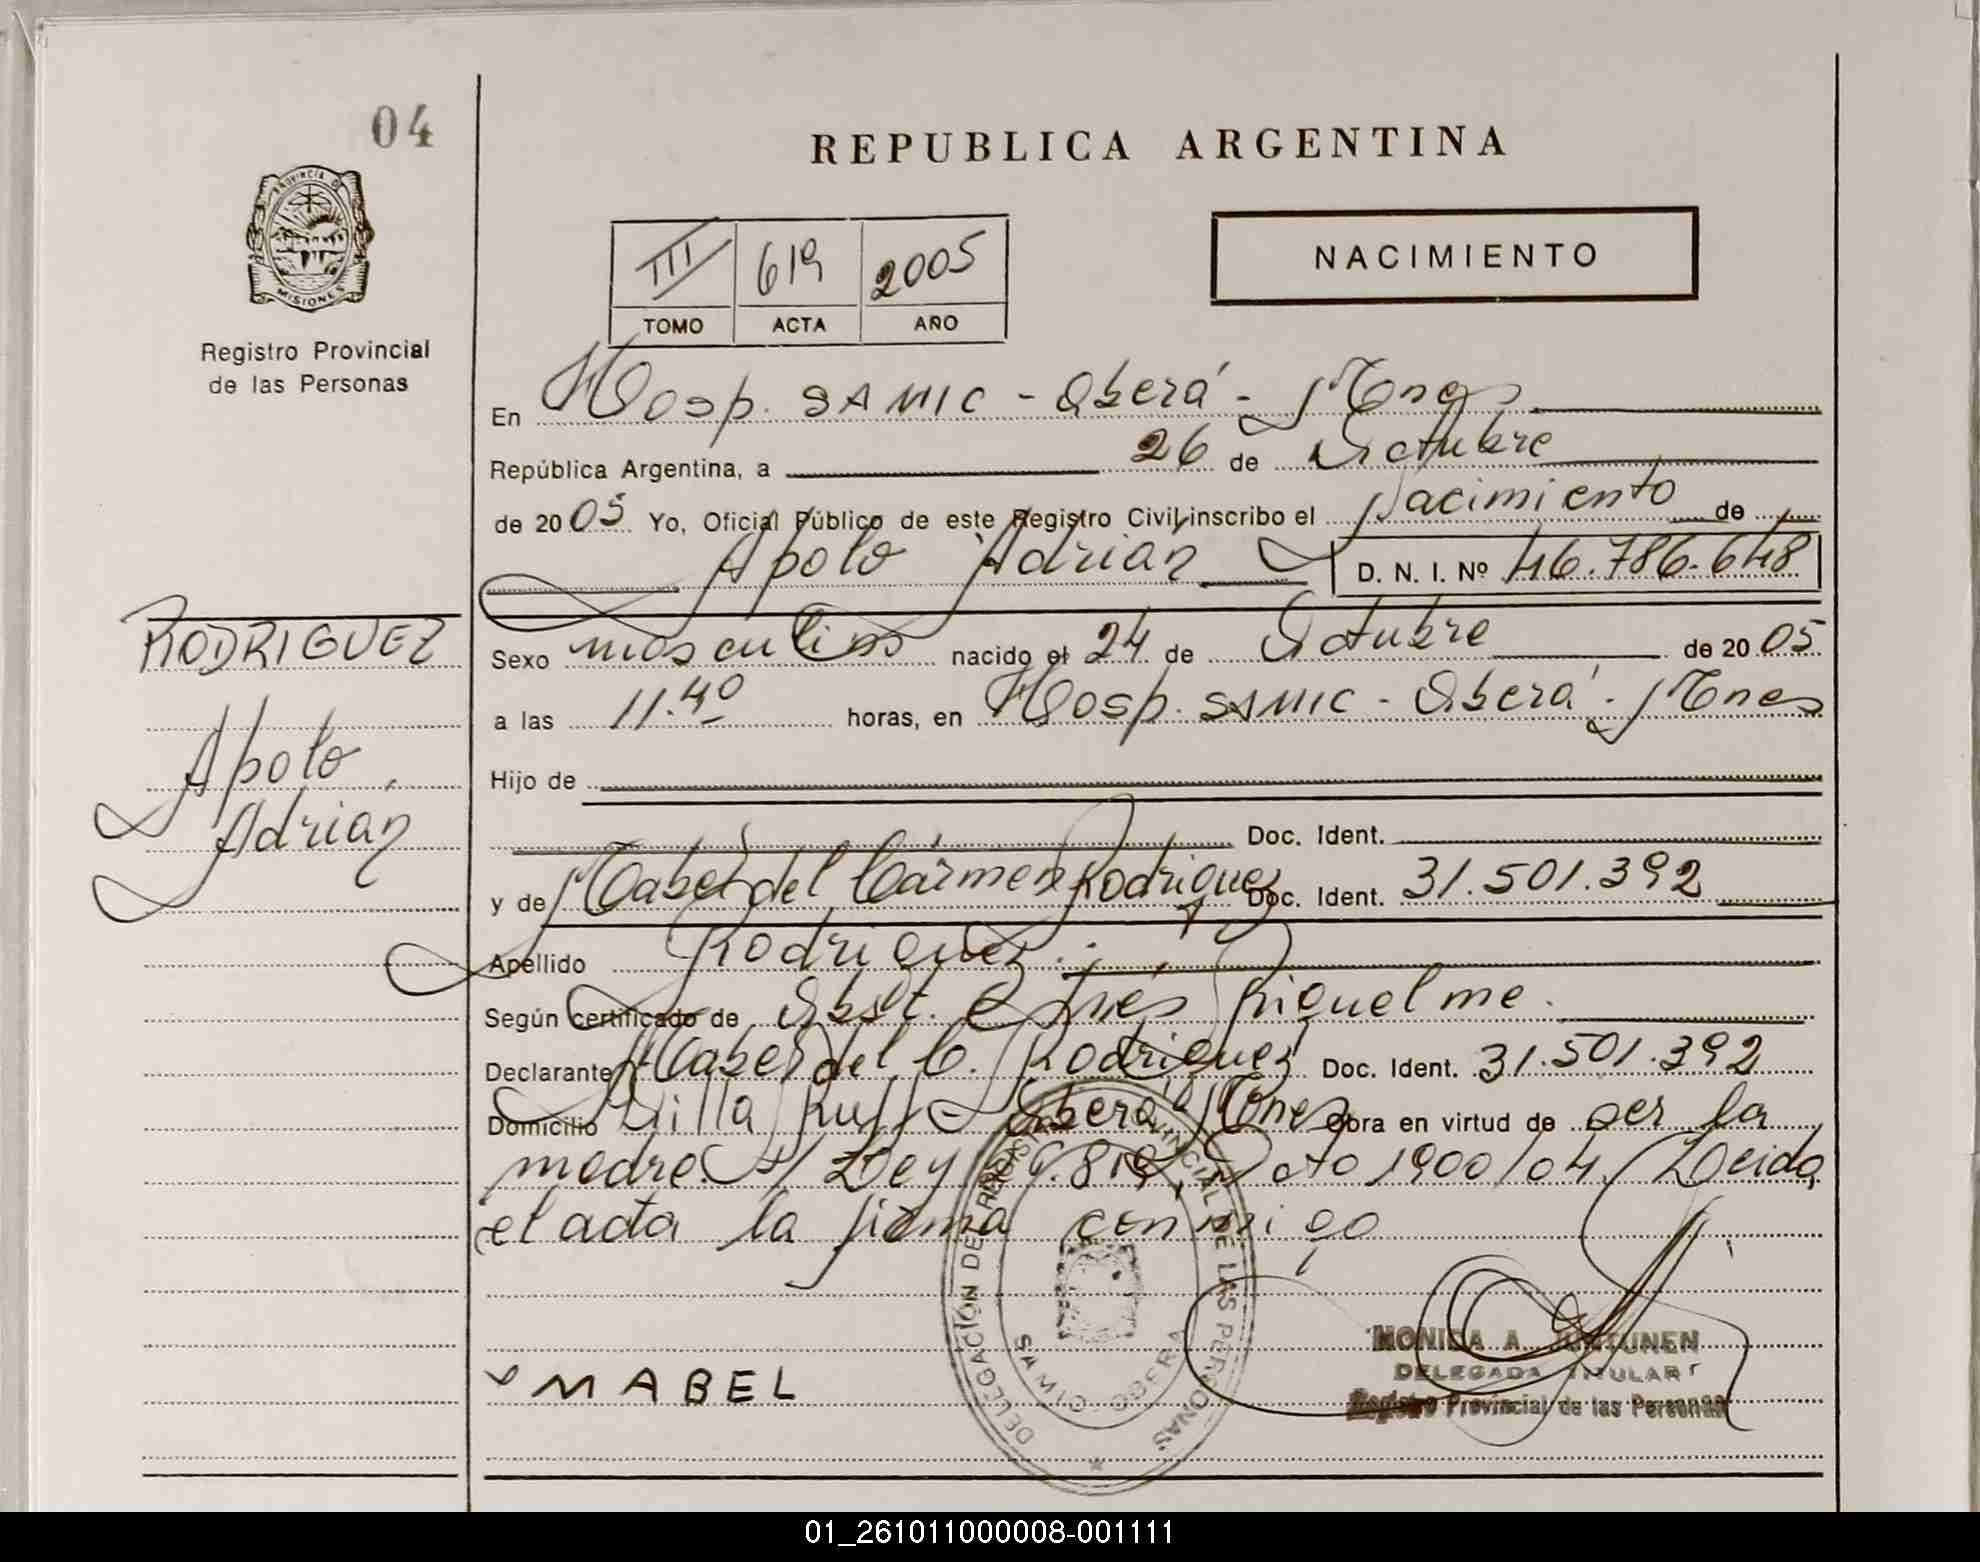 04
REPUBLICA ARGENTINA
PROVINCIA DE
MISIONES
Registro Provincial
de las Personas
III 619 2005
TOMO ACTA AÑO
NACIMIENTO
En Hosp. SAMIC - Oberá - Mnes
República Argentina, a 26 de Octubre
de 2005 Yo, Oficial Público de este Registro Civil inscribo el Nacimiento de
Apolo Adrián D. N. I. Nº 46.786.648
RODRIGUEZ
Apolo
Adrián
Sexo masculino nacido el 24 de Octubre de 2005
a las 11.40 horas, en Hosp. SAMIC - Oberá - Mnes
Hijo de
Doc. Ident.
y de Mabel del Cármen Rodriguez Doc. Ident. 31.501.392
Apellido Rodriguez.
Según certificado de Obst. Inés Riquelme.
Declarante Mabel del C. Rodriguez Doc. Ident. 31.501.392
Domicilio Villa Ruff - Oberá Mnes Obra en virtud de ser la
madre. S/ Ley 9.819, Dto 1900/04. Leida
el acta la firma conmigo
MABEL
DELEGACIÓN DEL REGISTRO PROVINCIAL DE LAS PERSONAS
OBERA
MONICA A.
DELEGADA TITULAR
Registro Provincial de las Personas
01_261011000008-001111